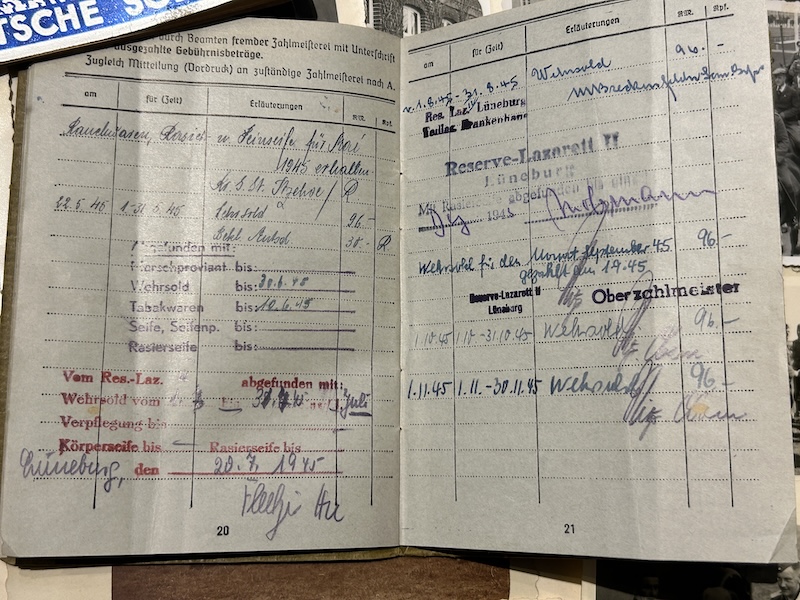 TSCHE SC
durch Beamten fremder Zahlmeisterei mit Unterschrift
ausgezahlte Gebührnisbeträge.
Zugleich Mitteilung (Vordruck) an zuständige Zahlmeisterei nach A.
am für (Zeit) Erläuterungen RM. Rpf.
Rauchwaren, Rasier- u. Feinseife für Mai
1945 erhalten
22.5.45 1.-31.5.45 Wehrsold 96.-
30.-
Abgefunden mit:
Marschproviant bis:
Wehrsold bis: 30.6.45
Tabakwaren bis: 10.6.45
Seife, Seifenp. bis:
Rasierseife bis:
Vom Res.-Laz. abgefunden mit:
Wehrsold vom Juli
Verpflegung bis
Körperseife bis Rasierseife bis
Lüneburg, den 20.7.1945
20
am für (Zeit) Erläuterungen RM. Rpf.
v. 1.8.45 - 31.8.45 Wehrsold 96.-
Res. Laz. IV Lüneburg
Krankenhaus
Reserve-Lazarett II
Lüneburg
Mit Rasierseife abgefunden bis einschl.
1945
Wehrsold für den Monat September 45 96.-
gezahlt am 1.9.45
Reserve-Lazarett II
Lüneburg
Oberzahlmeister
1.10.45 1.10.-31.10.45 Wehrsold 96.-
1.11.45 1.11.-30.11.45 Wehrsold 96.-
21